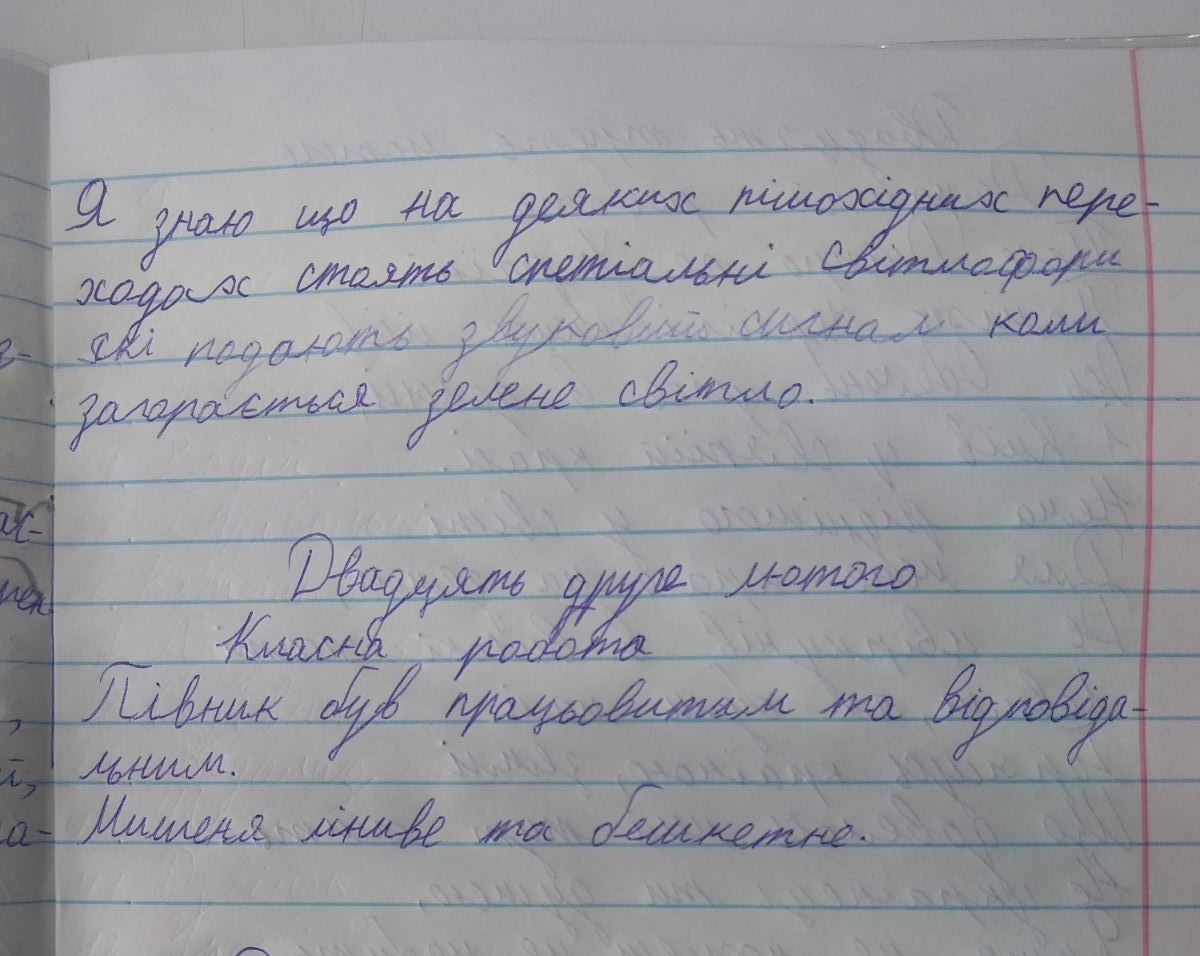 Я знаю що на деяких пішохідних пере-
ходах стоять спетіальні світлофори
які подають звуковий сигнал коли
загорається зелене світло.
Двадцять друге лютого
Класна робота
Півник був працьовитим та відповіда-
льним.
Мишеня ліниве та бешкетне.